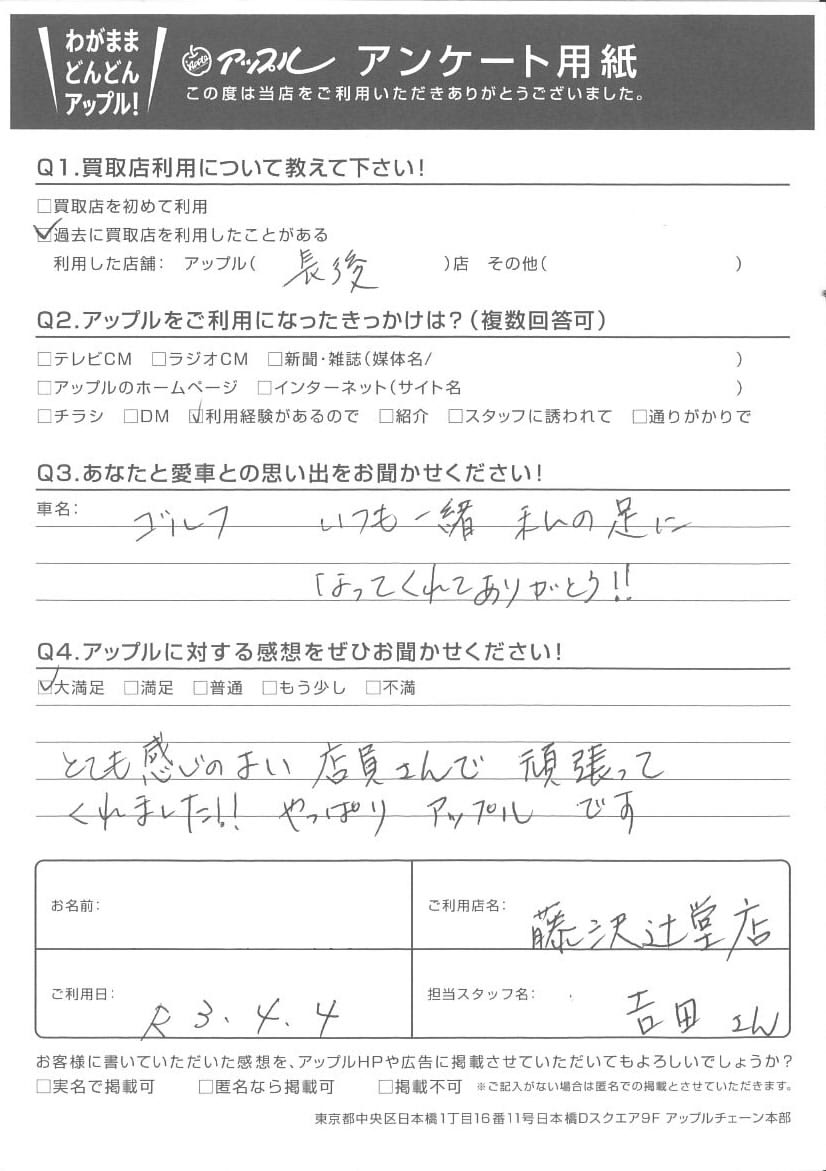 わがまま
どんどん
アップル!
Apple アップル アンケート用紙
この度は当店をご利用いただきありがとうございました。
Q1.買取店利用について教えて下さい!
□買取店を初めて利用
☑過去に買取店を利用したことがある
利用した店舗: アップル( 長後 )店 その他( )
Q2.アップルをご利用になったきっかけは?(複数回答可)
□テレビCM □ラジオCM □新聞・雑誌(媒体名/ )
□アップルのホームページ □インターネット(サイト名 )
□チラシ □DM ☑利用経験があるので □紹介 □スタッフに誘われて □通りがかりで
Q3.あなたと愛車との思い出をお聞かせください!
車名: ゴルフ いつも一緒 私の足に
なってくれてありがとう!!
Q4.アップルに対する感想をぜひお聞かせください!
☑大満足 □満足 □普通 □もう少し □不満
とても感じのよい 店員さんで 頑張って
くれました!! やっぱり アップル です
お名前:
ご利用店名: 藤沢辻堂店
ご利用日: R3.4.4
担当スタッフ名: 吉田さん
お客様に書いていただいた感想を、アップルHPや広告に掲載させていただいてもよろしいでしょうか?
□実名で掲載可 □匿名なら掲載可 □掲載不可 ※ご記入がない場合は匿名での掲載とさせていただきます。
東京都中央区日本橋1丁目16番11号日本橋Dスクエア9F アップルチェーン本部